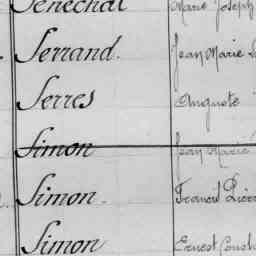 Sénéchal Marie Joseph
Serrand. Jean Marie
Serres Auguste
Simon Jean Marie
Simon. Francis Pierre
Simon Ernest